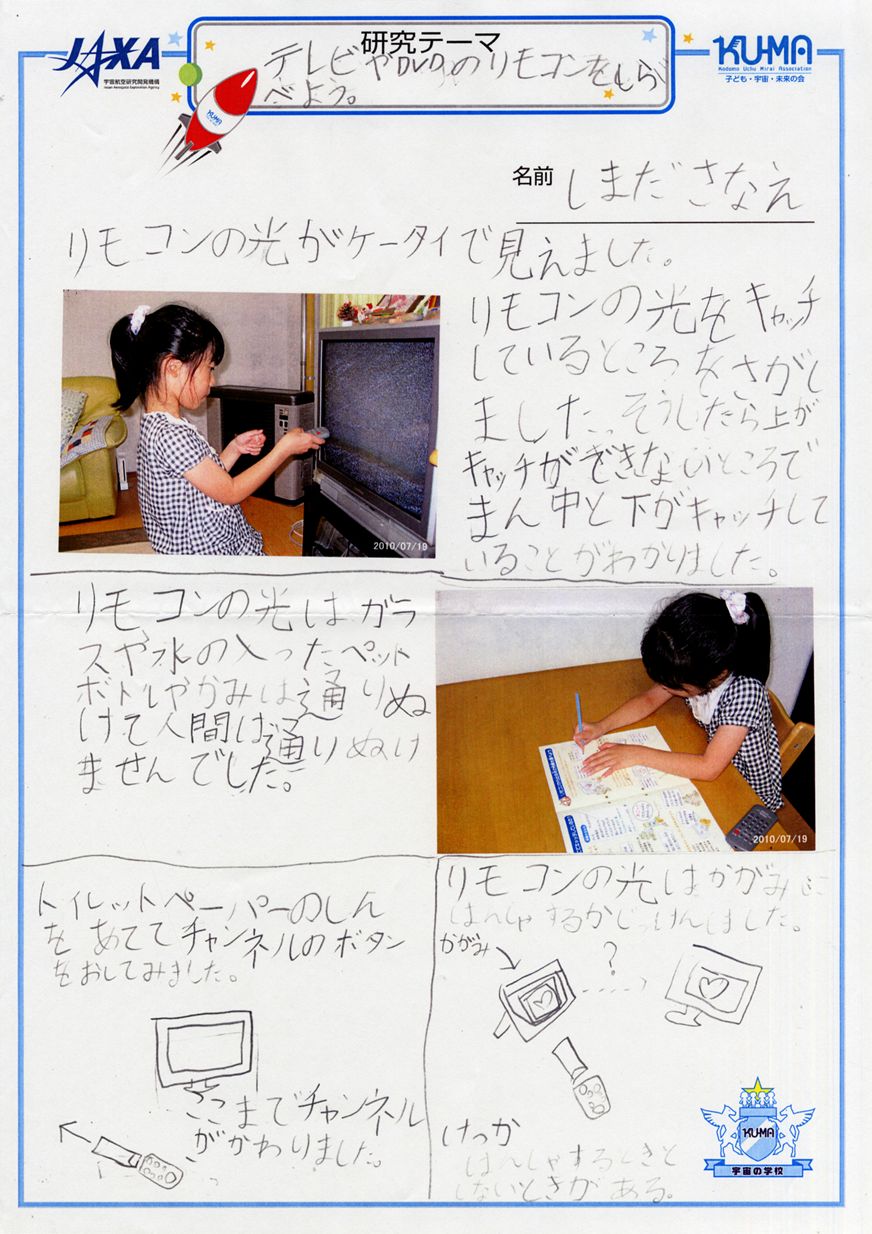 JAXA
宇宙航空研究開発機構
Japan Aerospace Exploration Agency
研究テーマ
テレビやDVDのリモコンをしらべ
べよう。
KU-MA
Kodomo Uchu Mirai Association
子ども・宇宙・未来の会
KU-MA
名前 しまださなえ
リモコンの光がケータイで見えました。
2010/07/19
リモコンの光をキャッチ
しているところをさがし
ました。そうしたら上が
キャッチができないところで
まん中と下がキャッチして
いることがわかりました。
リモコンの光はガラ
スや水の入ったペット
ボトルやかみは通りぬ
けて人間は通りぬけ
ませんでした。
2010/07/19
トイレットペーパーのしん
をあててチャンネルのボタン
をおしてみました。
ここまでチャンネル
がかわりました。
リモコンの光はかがみに
はんしゃするかじっけんしました。
かがみ
?
けっか
はんしゃするときと
しないときがある。
KU-MA
宇宙の学校